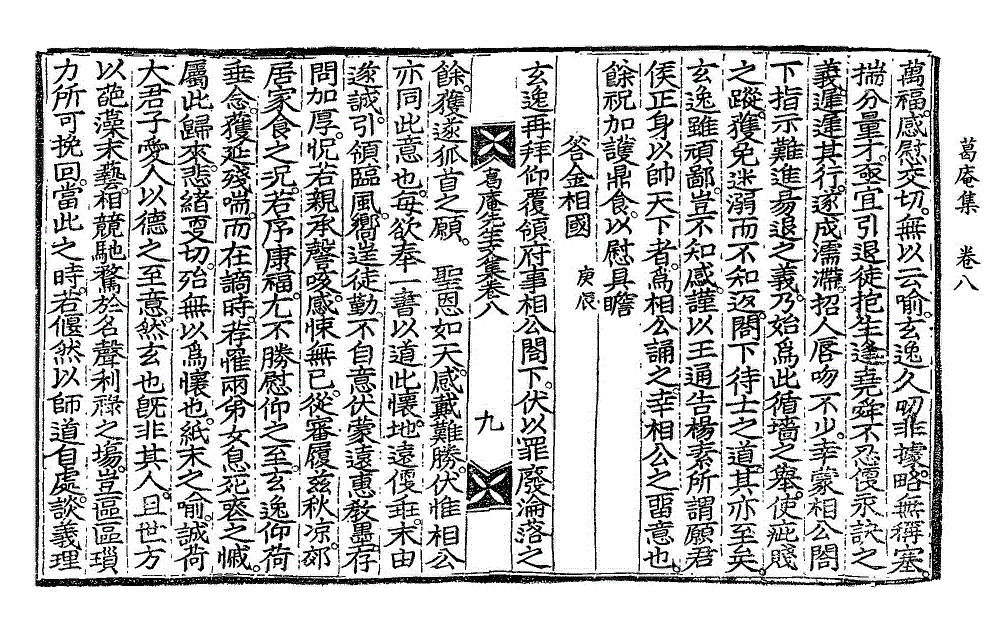 葛庵集　卷八
萬福感慰交切無以云喩玄逸久叨非據略無稱塞
揣分量才亟宜引退徒抱生逢堯舜不忍便永訣之
義遲遲其行遂成濡滯招人唇吻不少幸蒙相公閤
下指示難進易退之義乃始爲此循墻之擧使疵賤
之蹤獲免迷溺而不知返閤下待士之道其亦至矣
玄逸雖頑鄙豈不知感謹以王通告楊素所謂願君
侯正身以帥天下者爲相公誦之幸相公之留意也
餘祝加護鼎食以慰具瞻
答金相國　庚辰
玄逸再拜仰覆領府事相公閤下伏以罪廢淪落之
葛庵先生文集卷八　九
餘獲遂狐首之願　聖恩如天感戴難勝伏惟相公
亦同此意也每欲奉一書以道此懷地遠便稀末由
遂誠引領臨風嚮逞徒勤不自意伏蒙遠惠敎墨存
問加厚怳若親承聲咳感悚無已從審履玆秋凉郊
居家食之況若序康福尤不勝慰仰之至玄逸仰荷
垂念獲延殘喘而在謫時荐罹兩弟女息死喪之慽
屬此歸來悲緖更切殆無以爲懷也紙末之喩誠荷
大君子愛人以德之至意然玄也旣非其人且世方
以葩藻末藝相競馳騖於名聲利祿之場豈區區瑣
力所可挽回當此之時若偃然以師道自處談義理